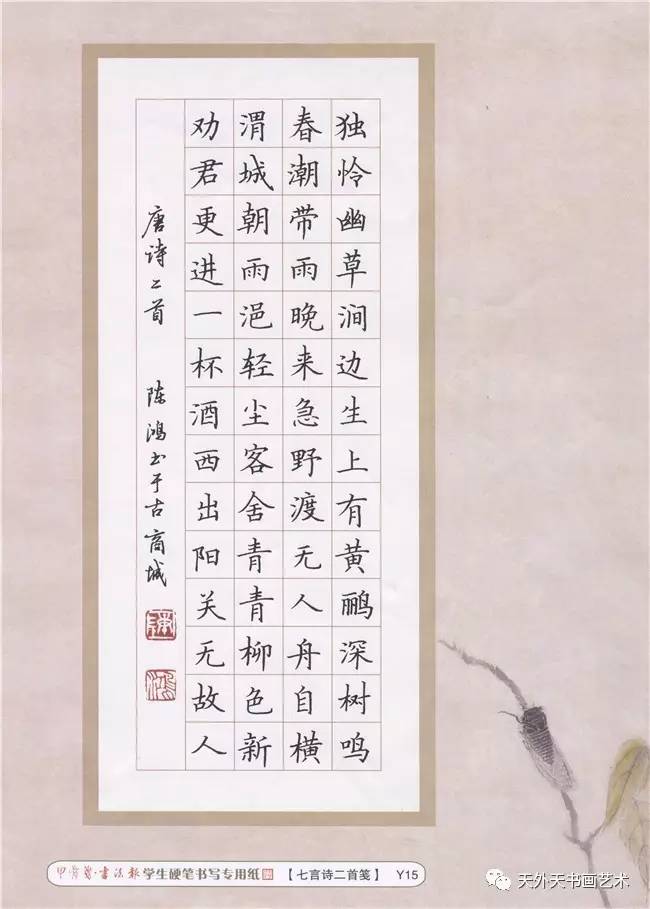 独怜幽草涧边生上有黄鹂深树鸣
春潮带雨晚来急野渡无人舟自横
渭城朝雨浥轻尘客舍青青柳色新
劝君更进一杯酒西出阳关无故人
唐诗二首 陈鸿书于古商城
陈
鸿
甲骨笺·书法报 学生硬笔书写专用纸 【七言诗二首笺】 Y15
天外天书画艺术